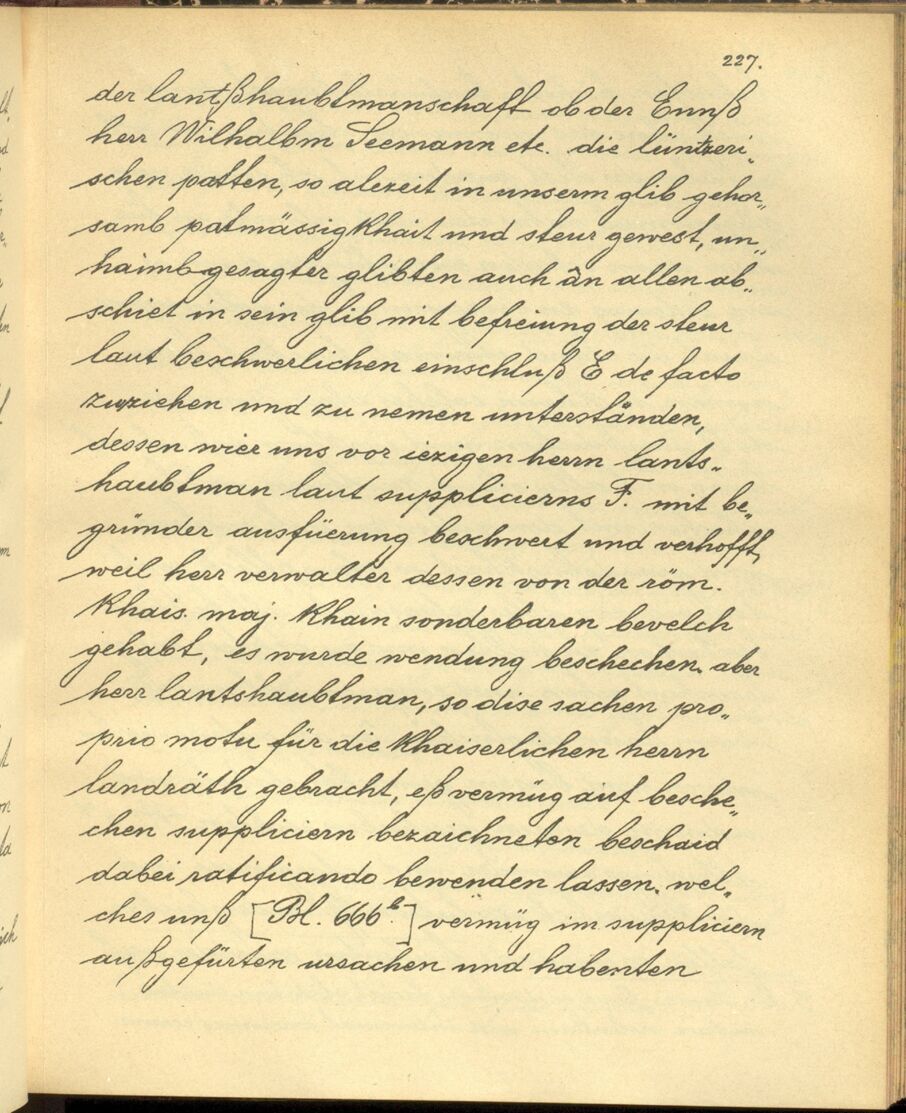 227.
der lantßhaubtmanschaft ob der Ennß
herr Wilhalbm Seemann etc. die lüntzeri„
schen patten, so alezeit in unserm glib gehor„
samb patmässigkhait und steur gewest, un„
haimbgesagter glibten auch ân allen ab„
schiet in sein glib mit befreiung der steur
laut beschwerlichen einschluß E de facto
zuziehen und zu nemen unterständen,
dessen wier uns vor iezigen herrn lants„
haubtman laut supplicierns F. mit be„
gründer ausfüerung beschwert und verhofft,
weil herr verwalter dessen von der röm.
khais. maj. khain sonderbaren bevelch
gehabt, es wurde wendung beschechen. aber
herr lantshaubtman, so dise sachen pro„
prio motu für die khaiserlichen herrn
landräth gebracht, eß vermüg auf besche„
chen suppliciern bezaichneten beschaid
dabei ratificando bewenden lassen. wel„
ches unß [Bl. 666b.] vermüg im suppliciern
außgefürten ursachen und habenten